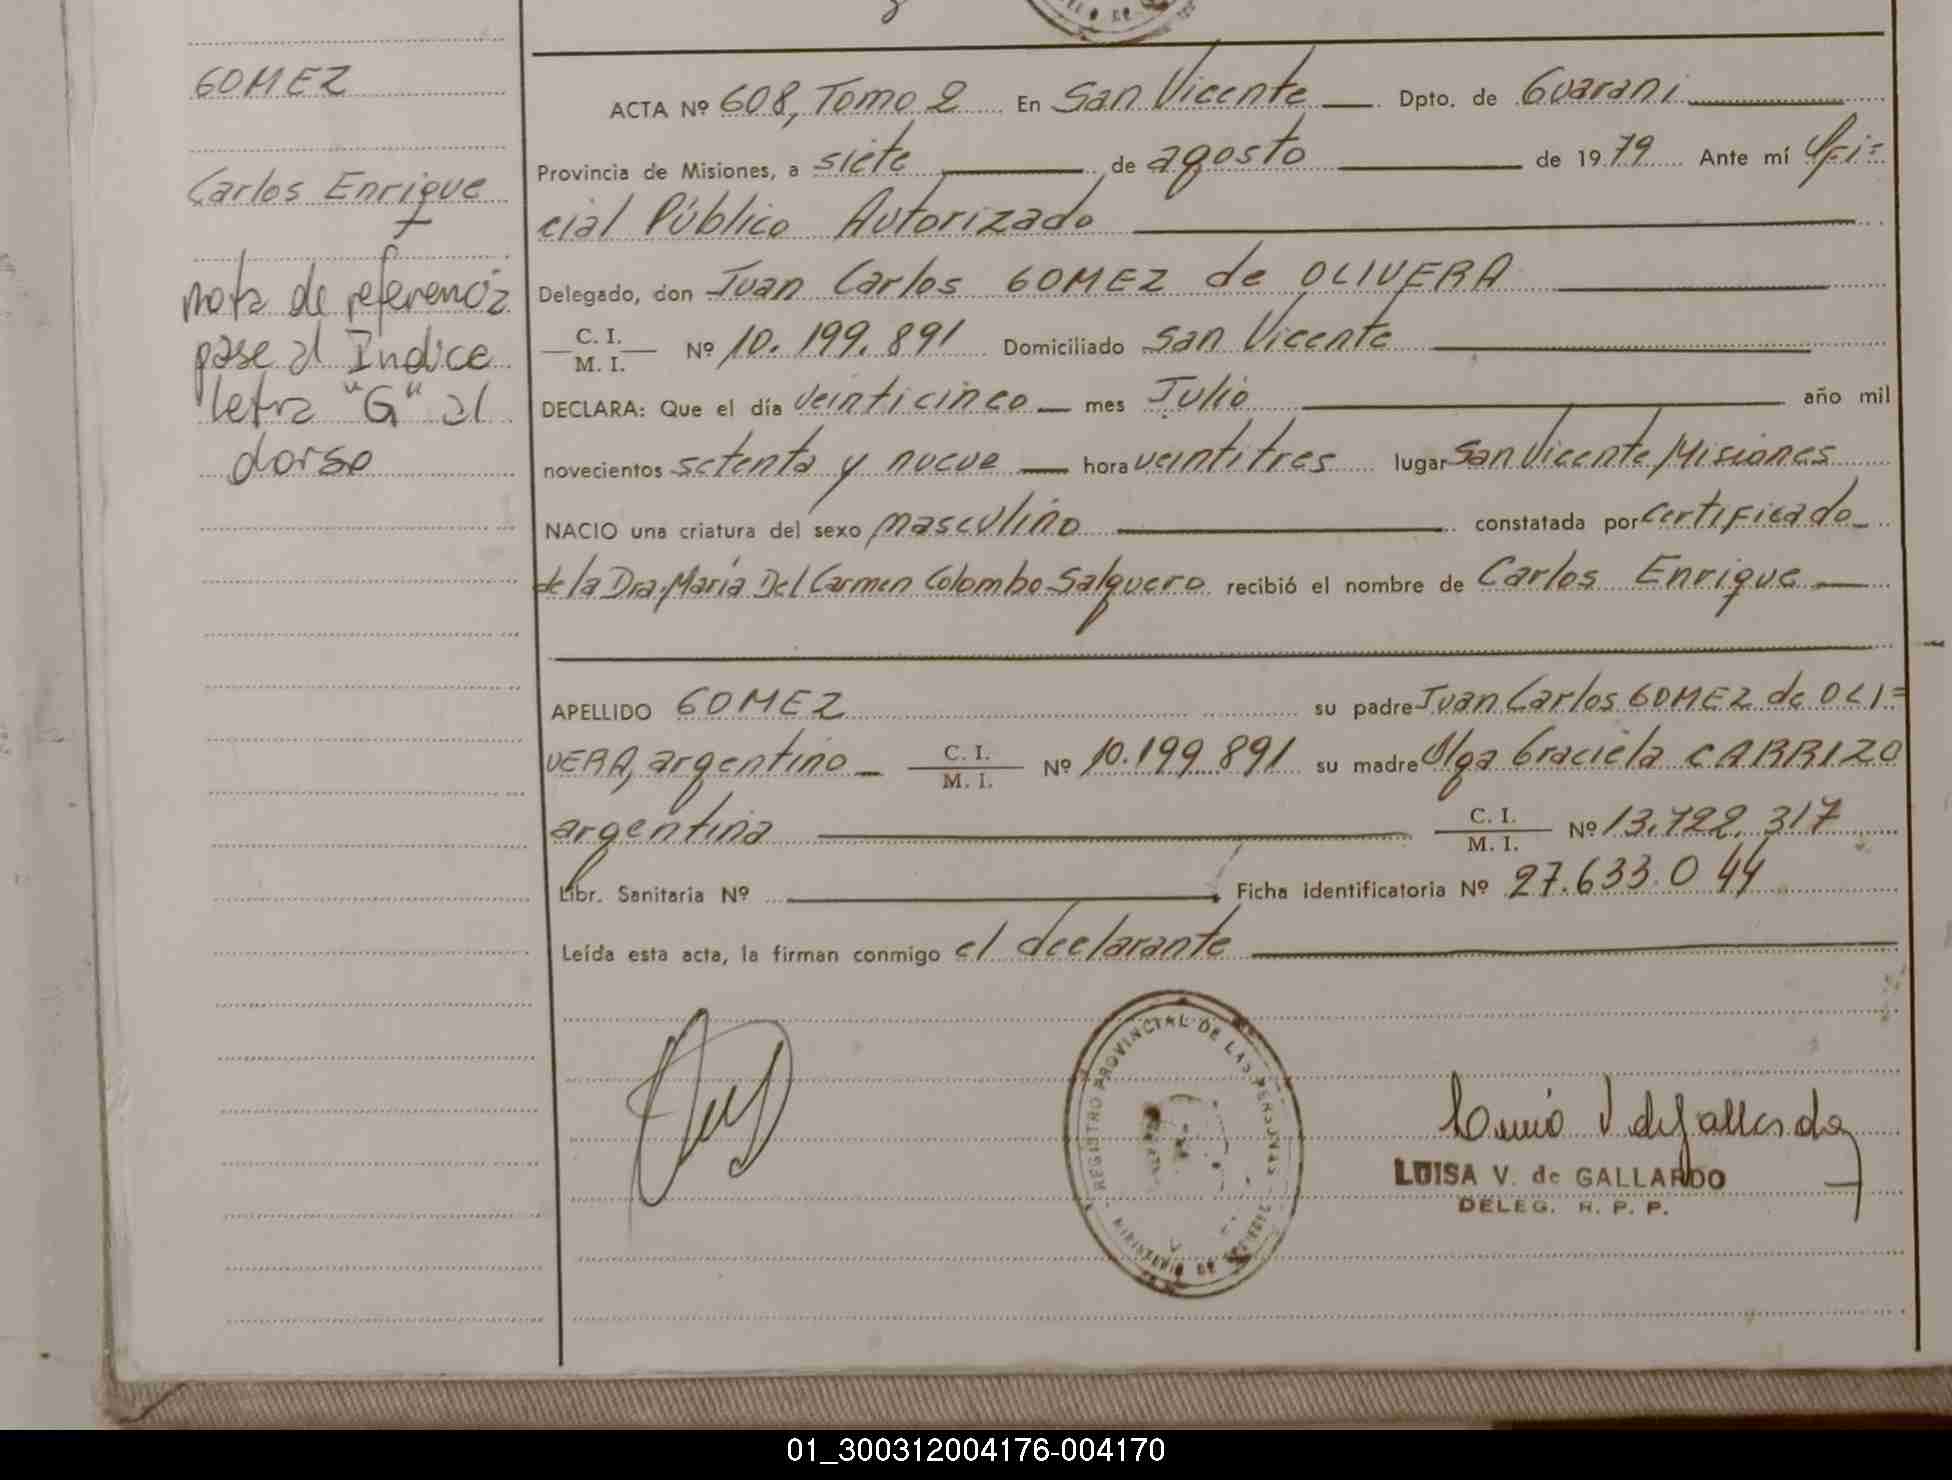 GOMEZ
Carlos Enrique
nota de referencia
pase al Indice
letra "G" al
dorso
ACTA Nº 608, Tomo 2 En San Vicente Dpto. de Guarani
Provincia de Misiones, a siete de agosto de 1979 Ante mí Ofi=
cial Público Autorizado
Delegado, don Juan Carlos GOMEZ de OLIVERA
C. I.
M. I. Nº 10.199.891 Domiciliado San Vicente
DECLARA: Que el día veinticinco mes Julio año mil
novecientos setenta y nueve hora veintitres lugar San Vicente, Misiones
NACIO una criatura del sexo masculino constatada por certificado
de la Dra. María Del Carmen Colombo Salguero recibió el nombre de Carlos Enrique
APELLIDO GOMEZ su padre Juan Carlos GOMEZ de OLI=
VERA, argentino C. I.
M. I. Nº 10.199.891 su madre Olga Graciela CARRIZO
argentina C. I.
M. I. Nº 13.722.317
Libr. Sanitaria Nº Ficha identificatoria Nº 27.633.044
Leída esta acta, la firman conmigo el declarante
REGISTRO PROVINCIAL DE LAS PERSONAS
LUISA V. de GALLARDO
DELEG. R. P. P.
01_300312004176-004170